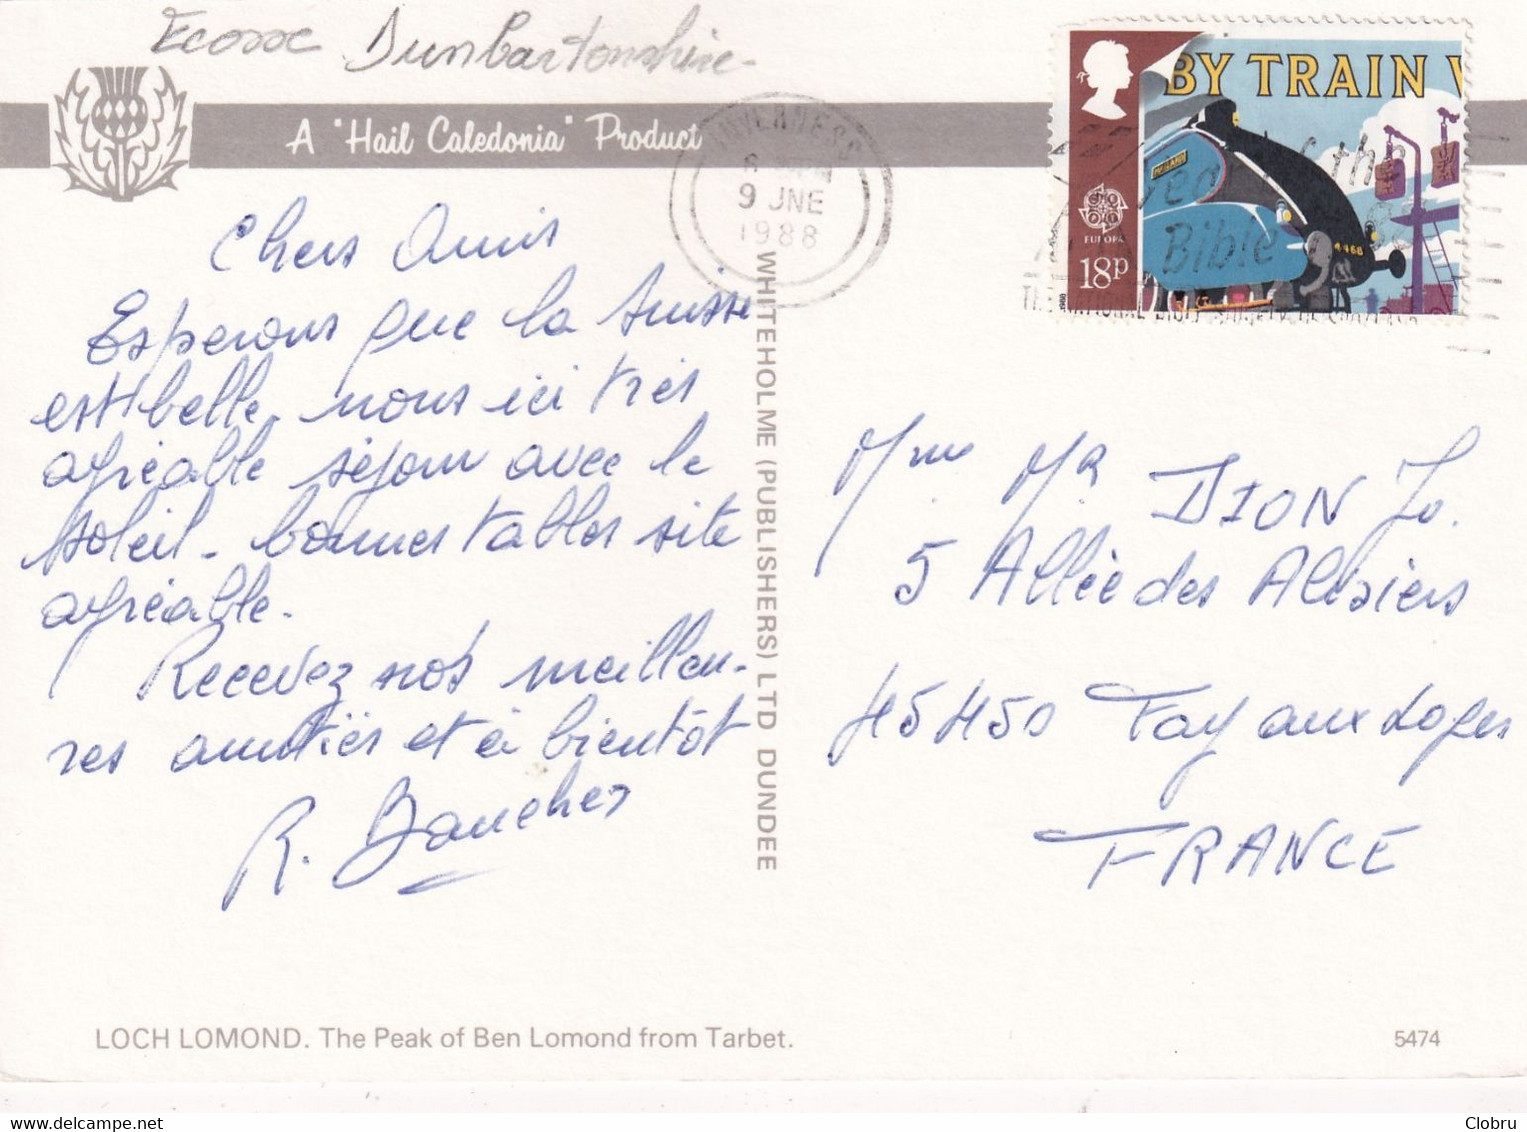 Ecosse Dunbartonshire -
A "Hail Caledonia" Product
INVERNESS
9 JNE
1988
BY TRAIN
Year of the
Bible
4468
EUROPA
18p
Chers Amis
Esperons que la Suisse
est belle. nous ici très
agréable séjour avec le
soleil - bonnes tables site
agréable.
Recevez nos meilleu-
res amitiés et à bientôt
R.
WHITEHOLME (PUBLISHERS) LTD DUNDEE
Mme Mr DION Jo.
5 Allée des Alisiers
45450 Fay aux Loges
FRANCE
LOCH LOMOND. The Peak of Ben Lomond from Tarbet.
5474
Clobru